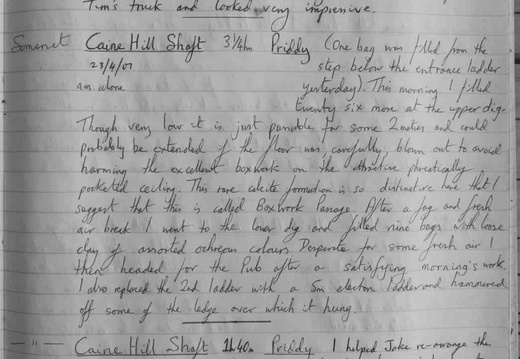 Tim's truck and looked very impressive.
Somerset Caine Hill Shaft 3¼hrs Priddy (One bag was filled from the
23/4/07 step below the entrance ladder
am. alone yesterday). This morning I filled
twenty six more at the upper dig.
Though very low it is just passable for some 2 metres and could
probably be extended if the floor was carefully blown out to avoid
harming the excellent boxwork on the attractive phreatically
pocketed ceiling. This rare calcite formation is so distinctive here that I
suggest that this is called Boxwork Passage. After a fag and fresh
air break I went to the lower dig and filled nine bags with loose
clay of assorted ochreous colours. Desperate for some fresh air I
then headed for the Pub after a satisfying morning's work.
I also replaced the 2nd ladder with a 5m electron ladder and hammered
off some of the ledge over which it hung.
— " — Caine Hill Shaft 1h40m Priddy I helped Jake re-arrange the